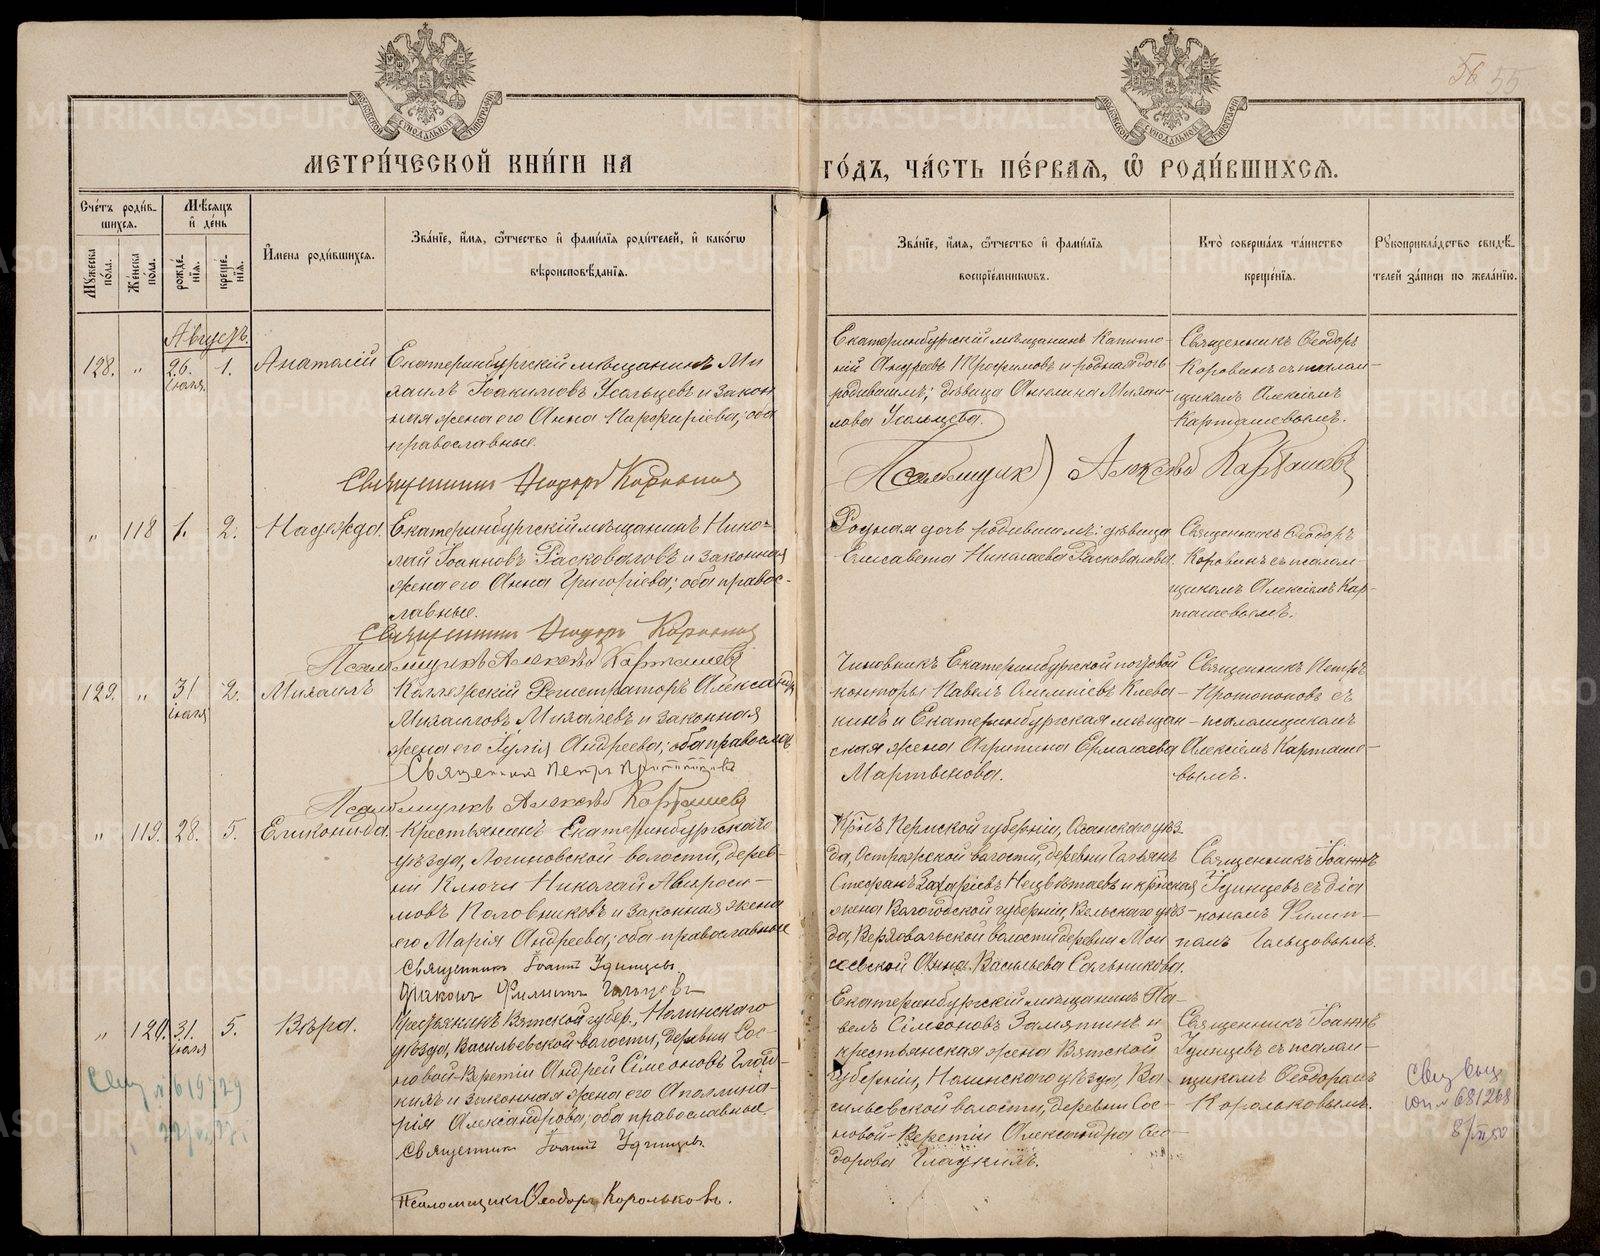 56 55
МЕТРИ́ЧЕСКОЙ КНИ́ГИ НА
ГО́ДЪ, ЧА́СТЬ ПЕ́РВАЯ, Ѡ҆ РОДИ́ВШИХСЯ.
Сче́тъ роди́в-
шихся.
Мꙋ́жеска
по́ла.
Же́нска
по́ла.
Мѣ́сяцъ
и҆ де́нь
рожде́-
нїя.
креще́-
нїя.
И҆мена роди́вшихся.
Зва́нїе, и҆́мя, ѻ҆́тчество и҆ фами́лїя роди́телей, и҆ како́гѡ
вѣроисповѣ́данїя.
Зва́нїе, и҆́мя, ѻ҆́тчество и҆ фами́лїя
воспрїе́мникѡвъ.
Кто̀ соверша́лъ та́инство
креще́нїя.
Рꙋкоприкла́дство свидѣ́-
телей за́писи по жела́нїю.
Августъ.
128. " 26. Іюля 1. Анатолій
Екатеринбургскій мѣщанинъ Ми
хаилъ Іоакимовъ Усольцевъ и закон
ная жена его Анна Парфиріева; оба
православные.
Священникъ Ѳеодоръ Коровинъ
Екатеринбургскій мѣщанинъ Капито-
ній Андреевъ Трофимовъ и родная дочь
родившихъ; дѣвица Ангелина Михаи-
лова Усольцева.
Священникъ Ѳеодоръ
Коровинъ съ псалом-
щикомъ Алексіемъ
Карташевымъ.
Псаломщикъ Алексѣй Карташевъ
" 118 1. 2. Надежда.
Екатеринбургскій мѣщанинъ Нико-
лай Іоанновъ Расковаловъ и законная
жена его Анна Григоріева; оба правос-
лавные.
Священникъ Ѳеодоръ Коровинъ
Псаломщикъ Алексѣй Карташевъ
Родная дочь родившихъ: дѣвица
Елисавета Николаева Расковалова.
Священникъ Ѳеодоръ
Коровинъ съ псалом-
щикомъ Алексіемъ Кар-
ташевымъ.
129. " 31 Іюля 2. Михаилъ
Коллежскій Регистраторъ Александръ
Михаиловъ Михалевъ и законная
жена его Юлія Андреева; оба православ.
Священникъ Петръ Протопоповъ
Псаломщикъ Алексѣй Карташевъ
Чиновникъ Екатеринбургской почтовой
конторы Павелъ
кинъ и Екатеринбургская мѣщан-
ская жена Агрипина Ермолаева
Мартьянова.
Священникъ Петръ
Протопоповъ съ
псаломщикомъ
Алексіемъ Карташе-
вымъ.
" 119. 28. 5. Еликонида.
Крестьянинъ Екатеринбургскаго
уѣзда, Логиновской волости, дерев-
ни Ключи Николай Амвроси-
мовъ Половниковъ и законная жена
его Марія Андреева; оба православные
Священникъ Іоаннъ Удинцевъ
Діаконъ Филиппъ Гальцовъ
Кр-нъ Пермской губерніи, Осанскаго уѣз
да, Острожской волости, деревни
Стефанъ Захаріевъ Нецвѣтаевъ и кр-нская
жена Вологодской губерніи, Вельскаго уѣз-
да, Верховажской волости деревни Мои
сеевской Анна Васильева Сальникова.
Священникъ Іоаннъ
Удинцевъ съ діа
кономъ Филип-
помъ Гальцовымъ.
" 120. 31. Іюля 5. Вѣра.
Крестьянинъ Вятской губер., Нолинскаго
уѣзда, Васильевской волости, деревни Сос-
новой-Веретіи Андрей Симеоновъ Глад-
кихъ и законная жена его Аполлина-
рія Александрова; оба православные.
Священникъ Іоаннъ Удинцевъ.
Псаломщикъ Ѳеодоръ Корольковъ.
Екатеринбургскій мѣщанинъ Па-
велъ Симеоновъ Замятинъ и
крестьянская жена Вятской
губерніи, Нолинскаго уѣзда, Ва-
сильевской волости, деревни Сос-
новой-Веретіи Александра Ѳео-
дорова Гладкихъ.
Священникъ Іоаннъ
Удинцевъ съ псалом-
щикомъ Ѳеодоромъ
Корольковымъ.
Свид. № 619729
Свид выд
юп № 681268
METRIKI.GASO-URAL.RU